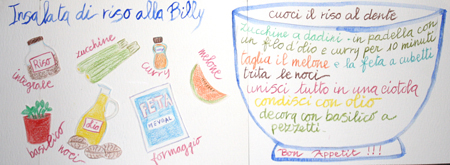 Insalata di riso alla Billy
Riso
integrale
zucchine
curry
melone
basilico
noci
olio
FETA
formaggio
cuoci il riso al dente
Zucchine a dadini - in padella con
un filo d'olio e curry per 10 minuti
taglia il melone e la feta a cubetti
trita le noci
unisci tutto in una ciotola
condisci con olio
decora con basilico a
pezzetti.
Bon Appetit !!!